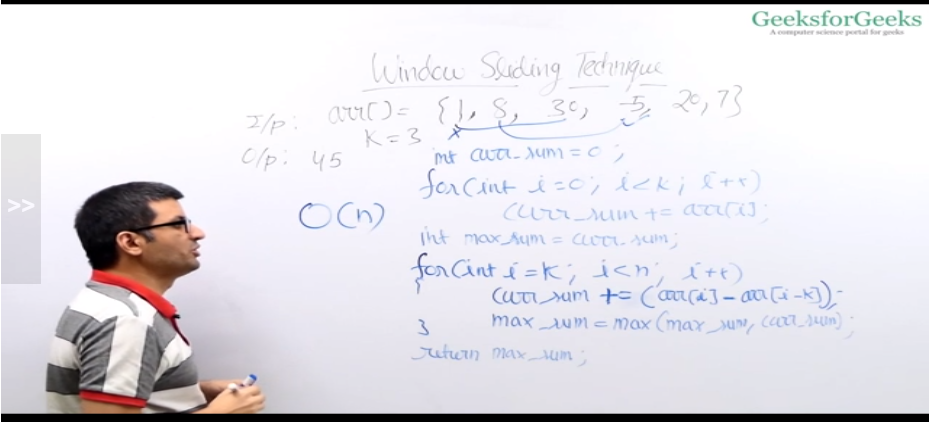 GeeksforGeeks
A computer science portal for geeks
Window Sliding Technique
I/p: arr() = {1, 8, 30, -5, 20, 7}
K = 3
O/p: 45
int curr_sum = 0;
for(int i=0; i<k; i++)
curr_sum += arr[i];
O(n)
int max_sum = curr_sum;
for(int i=k; i<n; i++)
{
curr_sum += (arr[i] - arr[i-k]);
max_sum = max(max_sum, curr_sum);
}
return max_sum;
>>